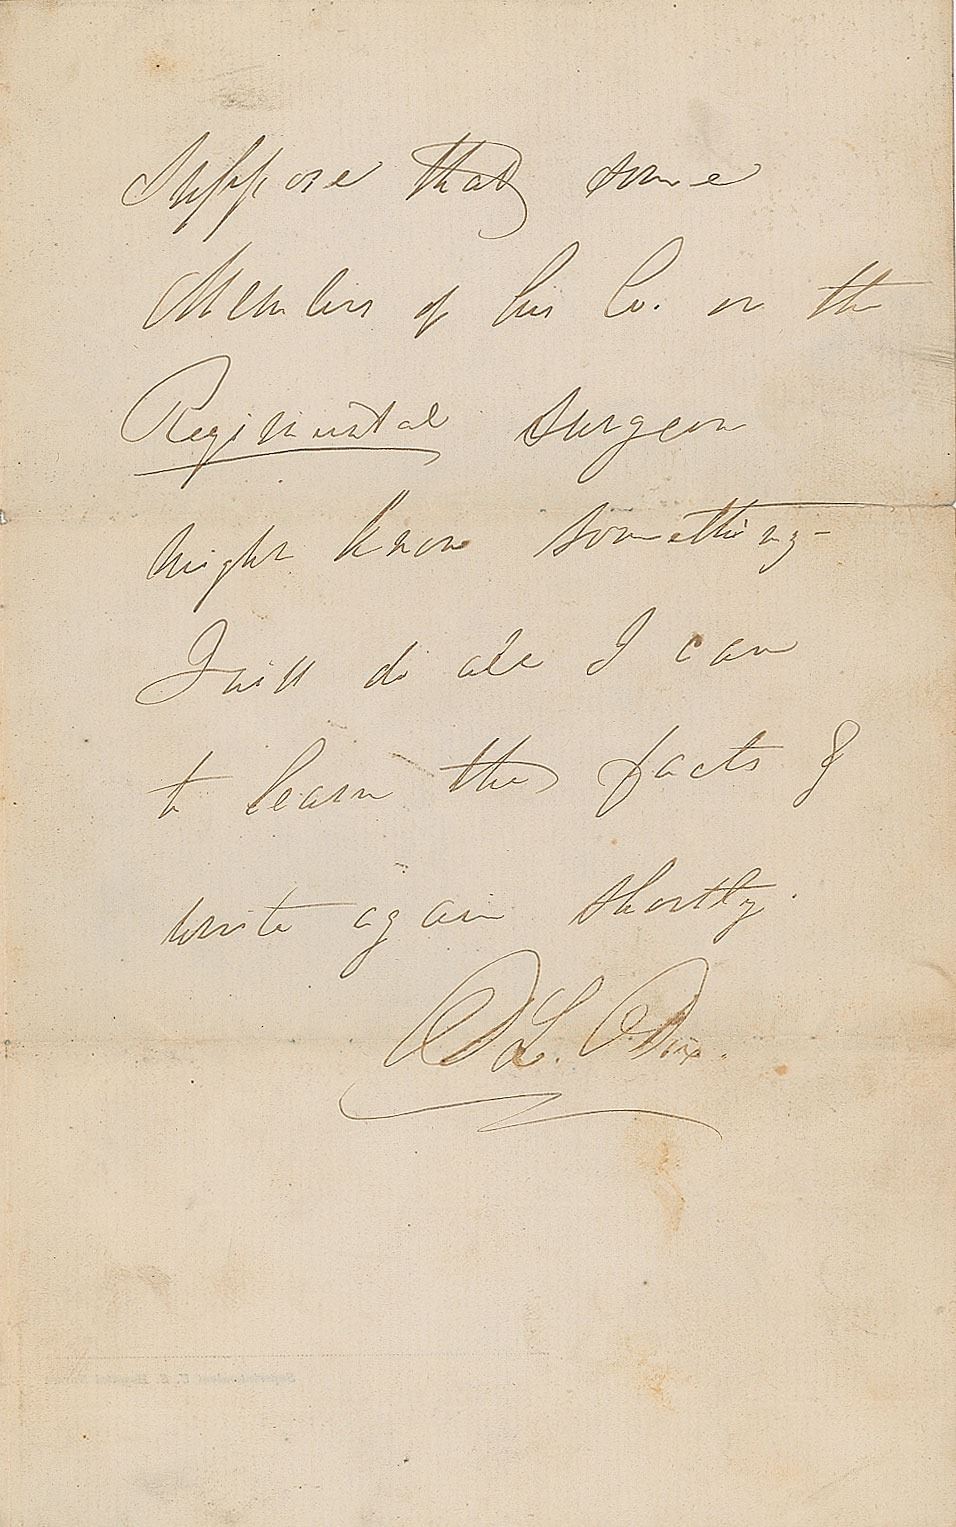 Suppose that some
Members of his Co. or the
Regimental Surgeon
might know something -
I will do all I can
to learn the facts &
write again shortly.
D L. Dix.
Superintendent U. S. Hospital